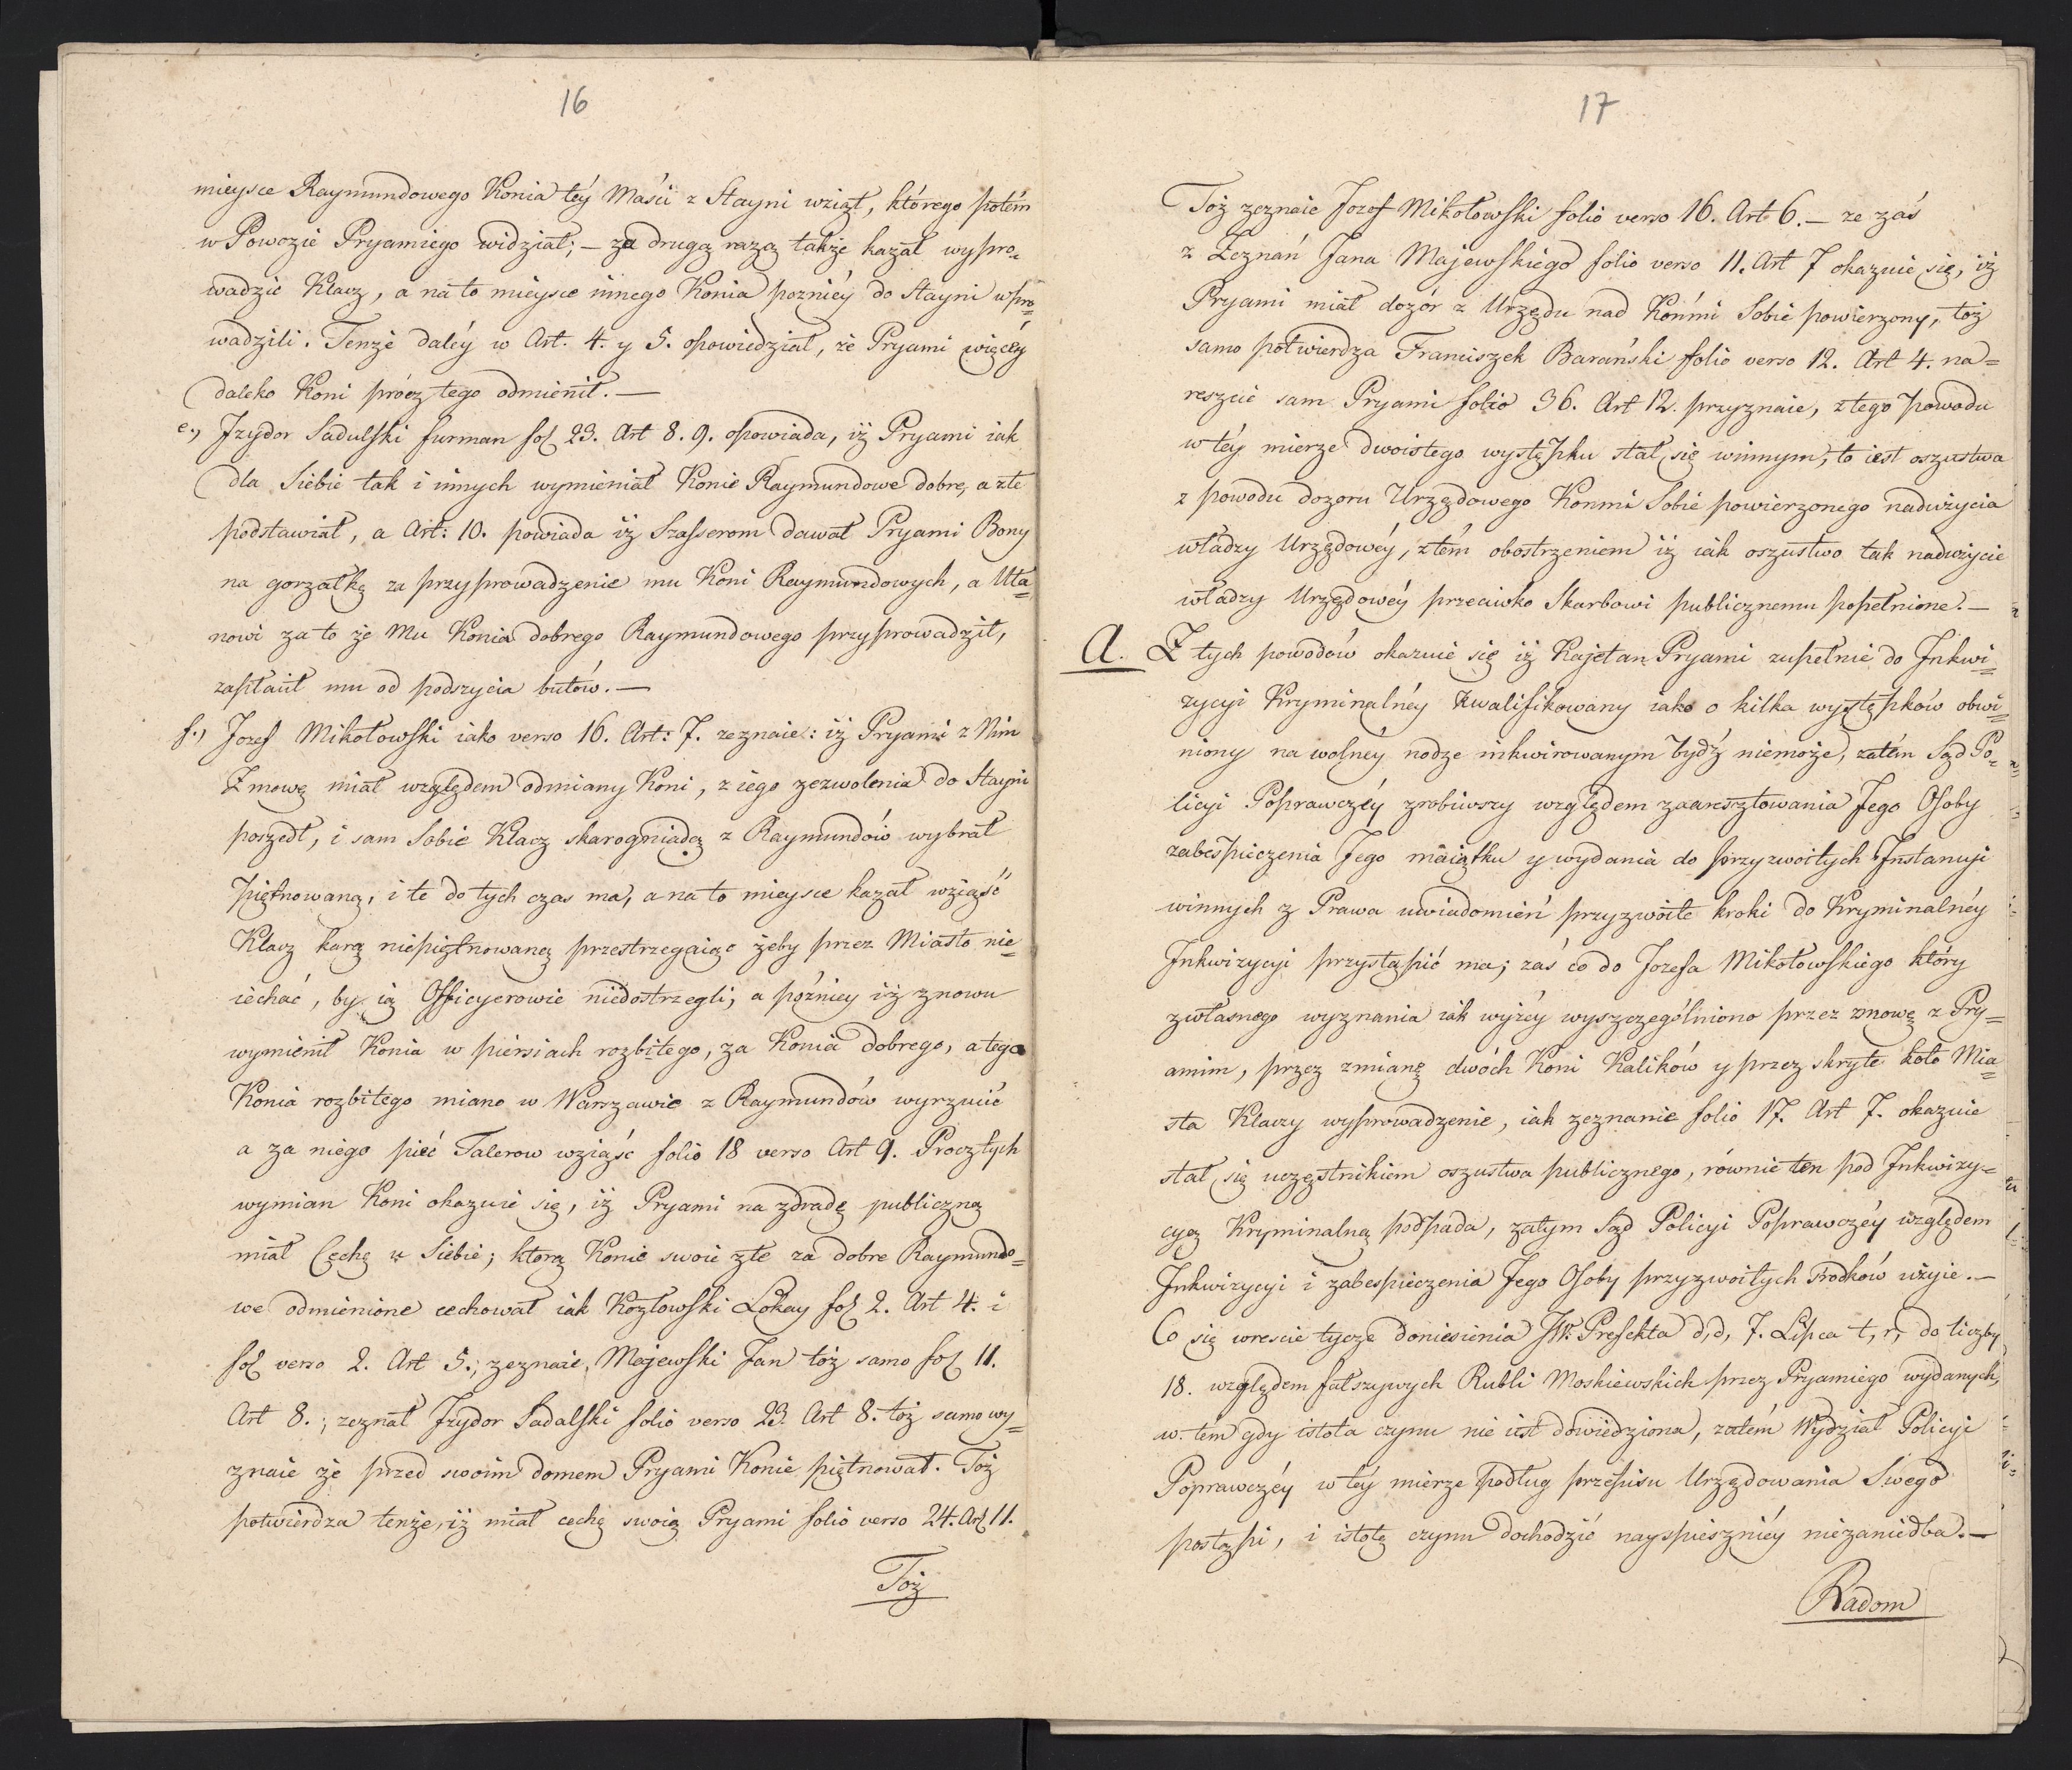 16
mieysce Raymundowego Konia téy Maści z Stayni wziął, którego potém
w Powozie Pryamiego widział; – za drugą razą także kazał wypro=
wadzić Klacz, a na to mieysce innego Konia pozniéy do Stayni wpro=
wadzili. Tenże daléy w Art. 4. y 5. opowiedział, że Pryami więcéy
daleko Koni prócz tego odmienił. —
e., Jzydor Sadulski furman fol 23. Art 8. 9. opowiada, iż Pryami iak
dla Siebie tak i innych wymieniał Konie Raymundowe dobre, a złe
podstawiał, a Art: 10. powiada iż Szasserom dawał Pryami Bony
na gorzałkę za przyprowadzenie mu Koni Raymundowych, a Uła=
nowi za to że Mu Konia dobrego Raymundowego przyprowadził,
zapłacił mu od podszycia butów. —
f., Jozef Mikołowski iako verso 16. Art: 7. zeznaie: iż Pryami z Nim
Zmowę miał względem odmiany Koni, z iego zezwolenia do Stayni
poszedł, i sam Sobie Klacz skarogniadą z Raymundów wybrał
Piętnowaną, i te do tych czas ma, a na to mieysce kazał wziąść
Klacz karą niepiętnowaną przestrzegaiąc żeby przez Miasto nie=
iechać, by ią Officyerowie niedostrzegli, a pózniey iż znowu
wymienił Konia w piersiach rozbitego, za Konia dobrego, a tego
Konia rozbitego miano w Warszawie z Raymundów wyrzucić
a za niego pięć Talerow wziąść folio 18 verso Art 9. Procz tych
wymian Koni okazuie się, iż Pryami na zdradę publiczną
miał Cechę u Siebie; ktorą Konie swoie złe za dobre Raymundo=
we odmienione cechował iak Kozłowski Lokay fol 2. Art 4. i
fol verso 2. Art 5., zeznaie, Majewski Jan toż samo fol 11.
Art 8., zeznał Jzydor Sadalski folio verso 23. Art 8. toż samo wy=
znaie że przed swoim domem Pryami Konie piętnował. Toż
potwierdza tenże, iż miał cechę swoią Pryami folio verso 24. Art 11.
Toż
17
Toż zeznaie Jozef Mikołowski folio verso 16. Art 6. — ze zaś
z Zeznań Jana Majewskiego folio verso 11. Art 7 okazuie się, iż
Pryami miał dozór z Urzędu nad Końmi Sobie powierzony, toż
samo potwierdza Franciszek Barański folio verso 12. Art 4. na=
reszcie sam Pryami folio 36. Art 12. przyznaie, z tego powodu
w téy mierze dwoistego występku stał się winnym, to iest oszustwa
z powodu dozoru Urzędowego Konmi Sobie powierzonego nadużycia
władzy Urzędowéy, z tém obostrzeniem iż iak oszustwo tak nadużycie
władzy Urzędowéy przeciwko Skarbowi publicznemu popełnione. —
A. Z tych powodów okazuie się iż Kajetan Pryami zupełnie do Jnkwi=
zycyi Kryminalnéy kwalifikowany iako o kilka występków obwi=
niony na wolnéy nodze inkwirowanym bydź niemoże, zatém Sąd Po=
licyi Poprawczéy zrobiwszy względem zaaresztowania Jego Osoby
zabespieczenia Jego maiątku y wydania do przyzwoitych Jnstancyi
winnych z Prawa uwiadomień przyzwoite kroki do Kryminalnéy
Jnkwizycyi przystąpić ma; zaś co do Jozefa Mikołowskiego który
z własnego wyznania iak wyżéy wyszczególniono przez zmowę z Pry=
amim, przez zmianę dwóch Koni Kalików y przez skryte koło Mia=
sta Klaczy wyprowadzenie, iak zeznanie folio 17. Art 7. okazuie
stał się uczęstnikiem oszustwa publicznego, równie ten pod Jnkwizy=
cyą Kryminalną podpada, zatym Sąd Policyi Poprawczéy względem
Jnkwizycyi i zabespieczenia Jego Osoby przyzwoitych srodków użyie. —
Co się wreście tycze doniesienia JW. Prefekta d, d, 7. Lipca t, r, do liczby
18. względem fałszywych Rubli Moskiewskich przez Pryamiego wydanych,
w tém gdy istota czynu nie iest dowiedziona, zatém Wydział Policyi
Poprawczéy w téy mierze podług przepisu Urzędowania Swego
postąpi, i istotę czynu dochodzić nayspieszniéy niezaniedba. —
Radom